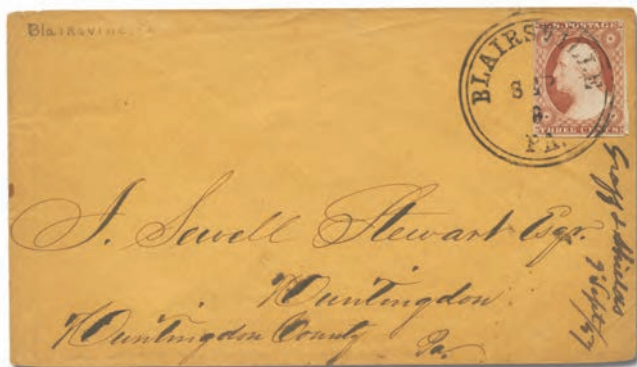 Blairsville, Pa
BLAIRSVILLE
SEP
PA.
U.S. POSTAGE
THREE CENTS
J. Sewell Stewart Esqr.
Huntingdon
Huntingdon County
Pa.